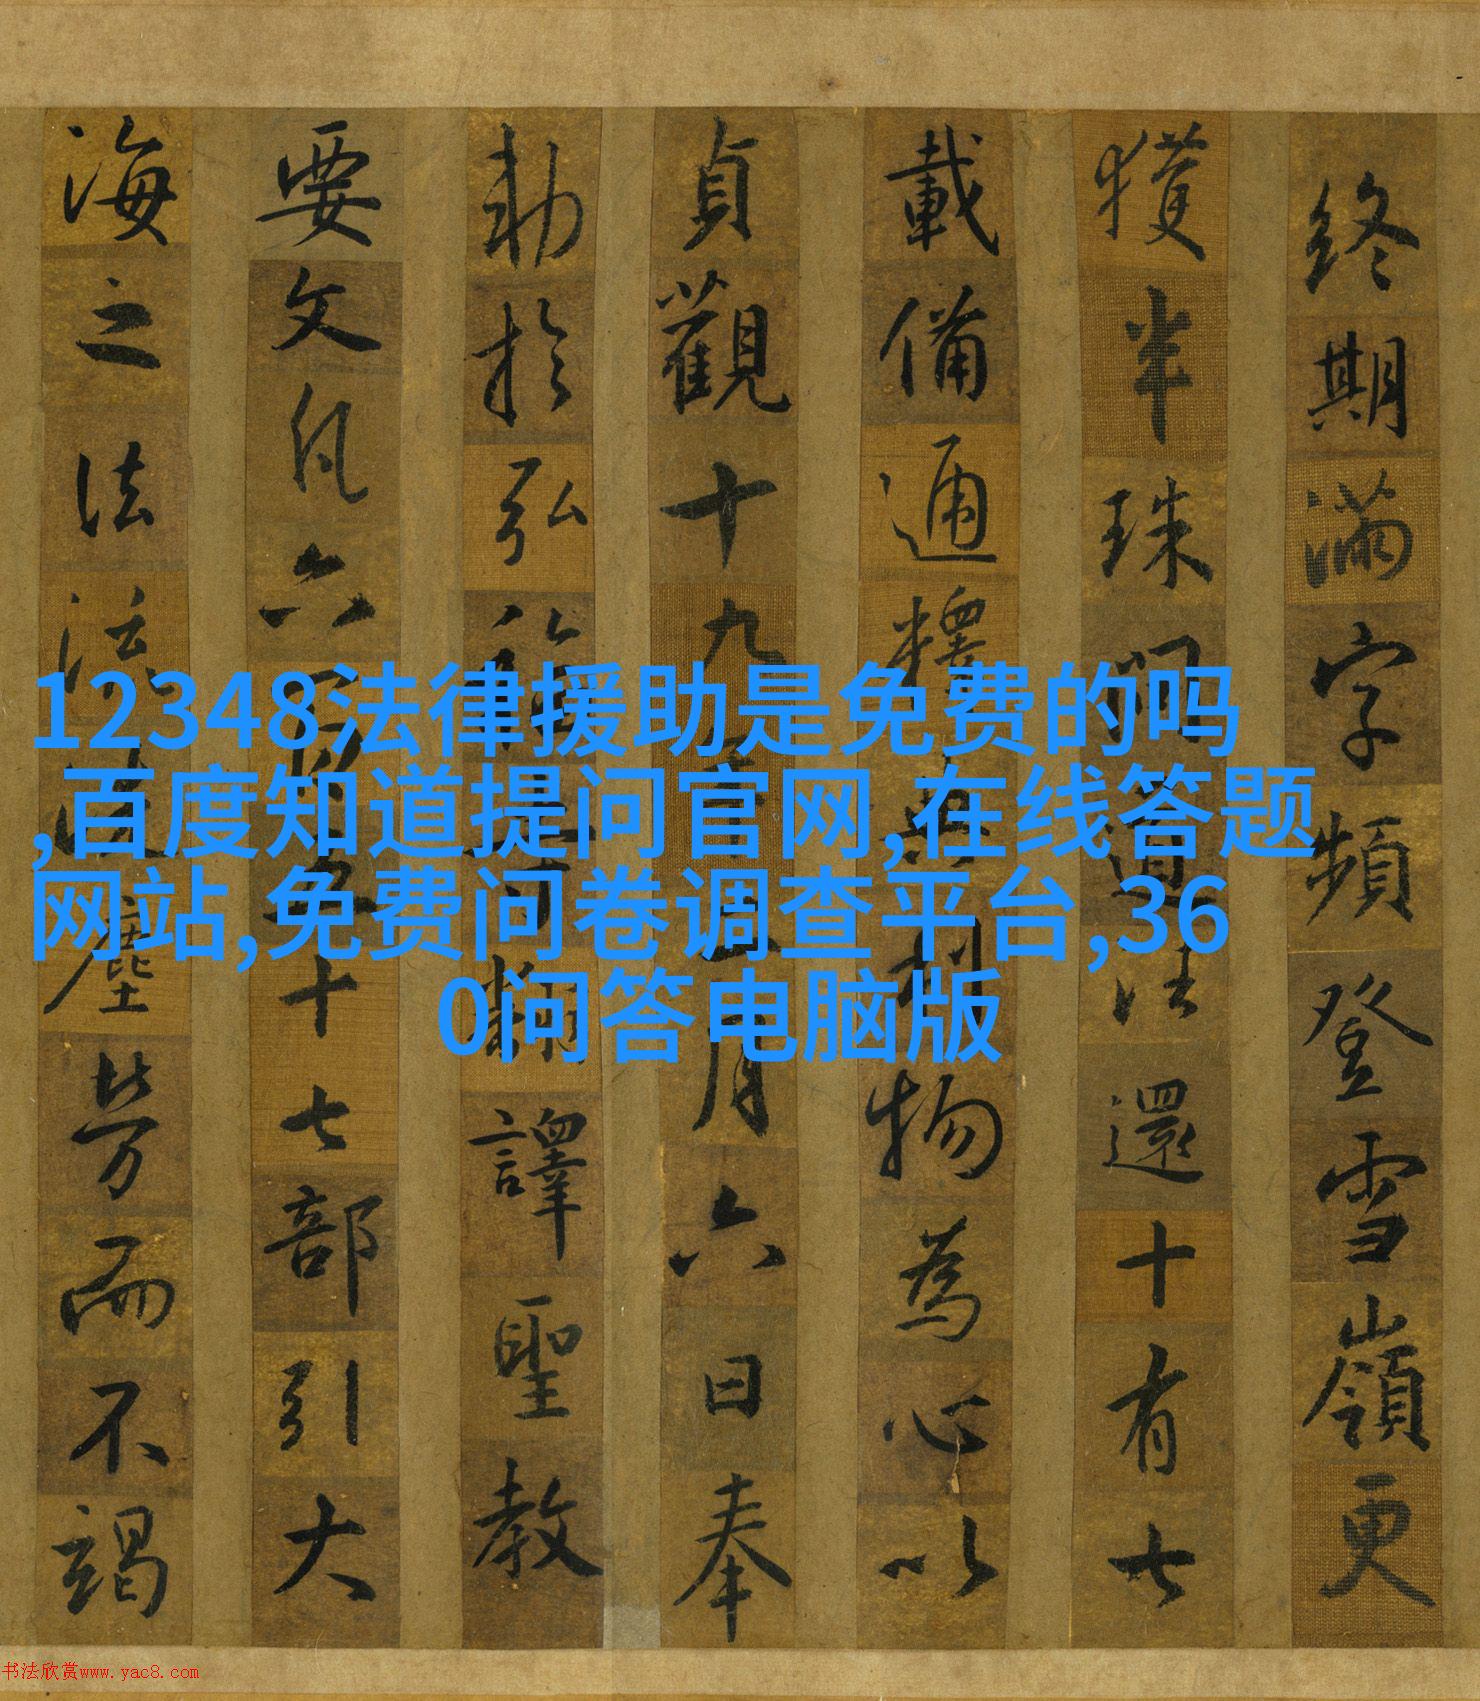 終期滿字頻登雪嶺更
獲半珠問道往還十有七
載備通釋典利物為心以
貞觀十九年二月六日奉
勅於弘福寺翻譯聖教
要文凡六百五十七部引大
海之法流洗塵勞而不竭
12348法律援助是免费的吗
,百度知道提问官网,在线答题
网站,免费问卷调查平台,36
0问答电脑版
书法欣赏www.yac8.com